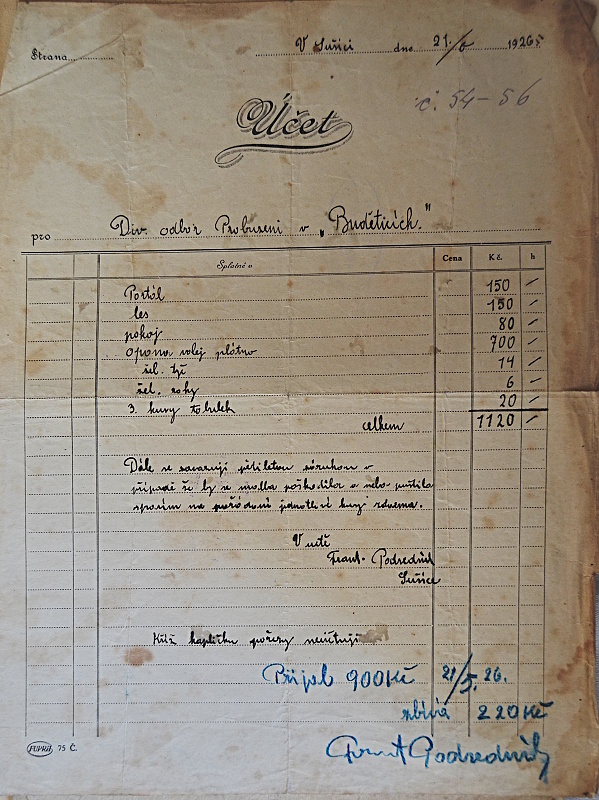 Strana
V Sušici dne 21./6 1926
č. 54-56
Účet
pro Div. odbor Probuzení v „Budětících."
Splatno v Cena Kč. h
Portál 150 –
les 150 –
pokoj 80 –
opona olej plátno 700 –
žel. tyč 14 –
žel. rohy 6 –
3. kusy tabulek 20 –
celkem 1120 –
Dále se zavazuji pětiletou zárukou v
případě že by se malba poškodila a nebo pustila
spravím na pořádání jednotlivé kusy zdarma.
V úctě
Frant. Podzedník
Sušice
Kříž kapličku pařezy neúčtuji
Přijal 900 Kč 21/5. 26.
zbývá 220 Kč
Frant Podzedník
FUPRA 75 Č.